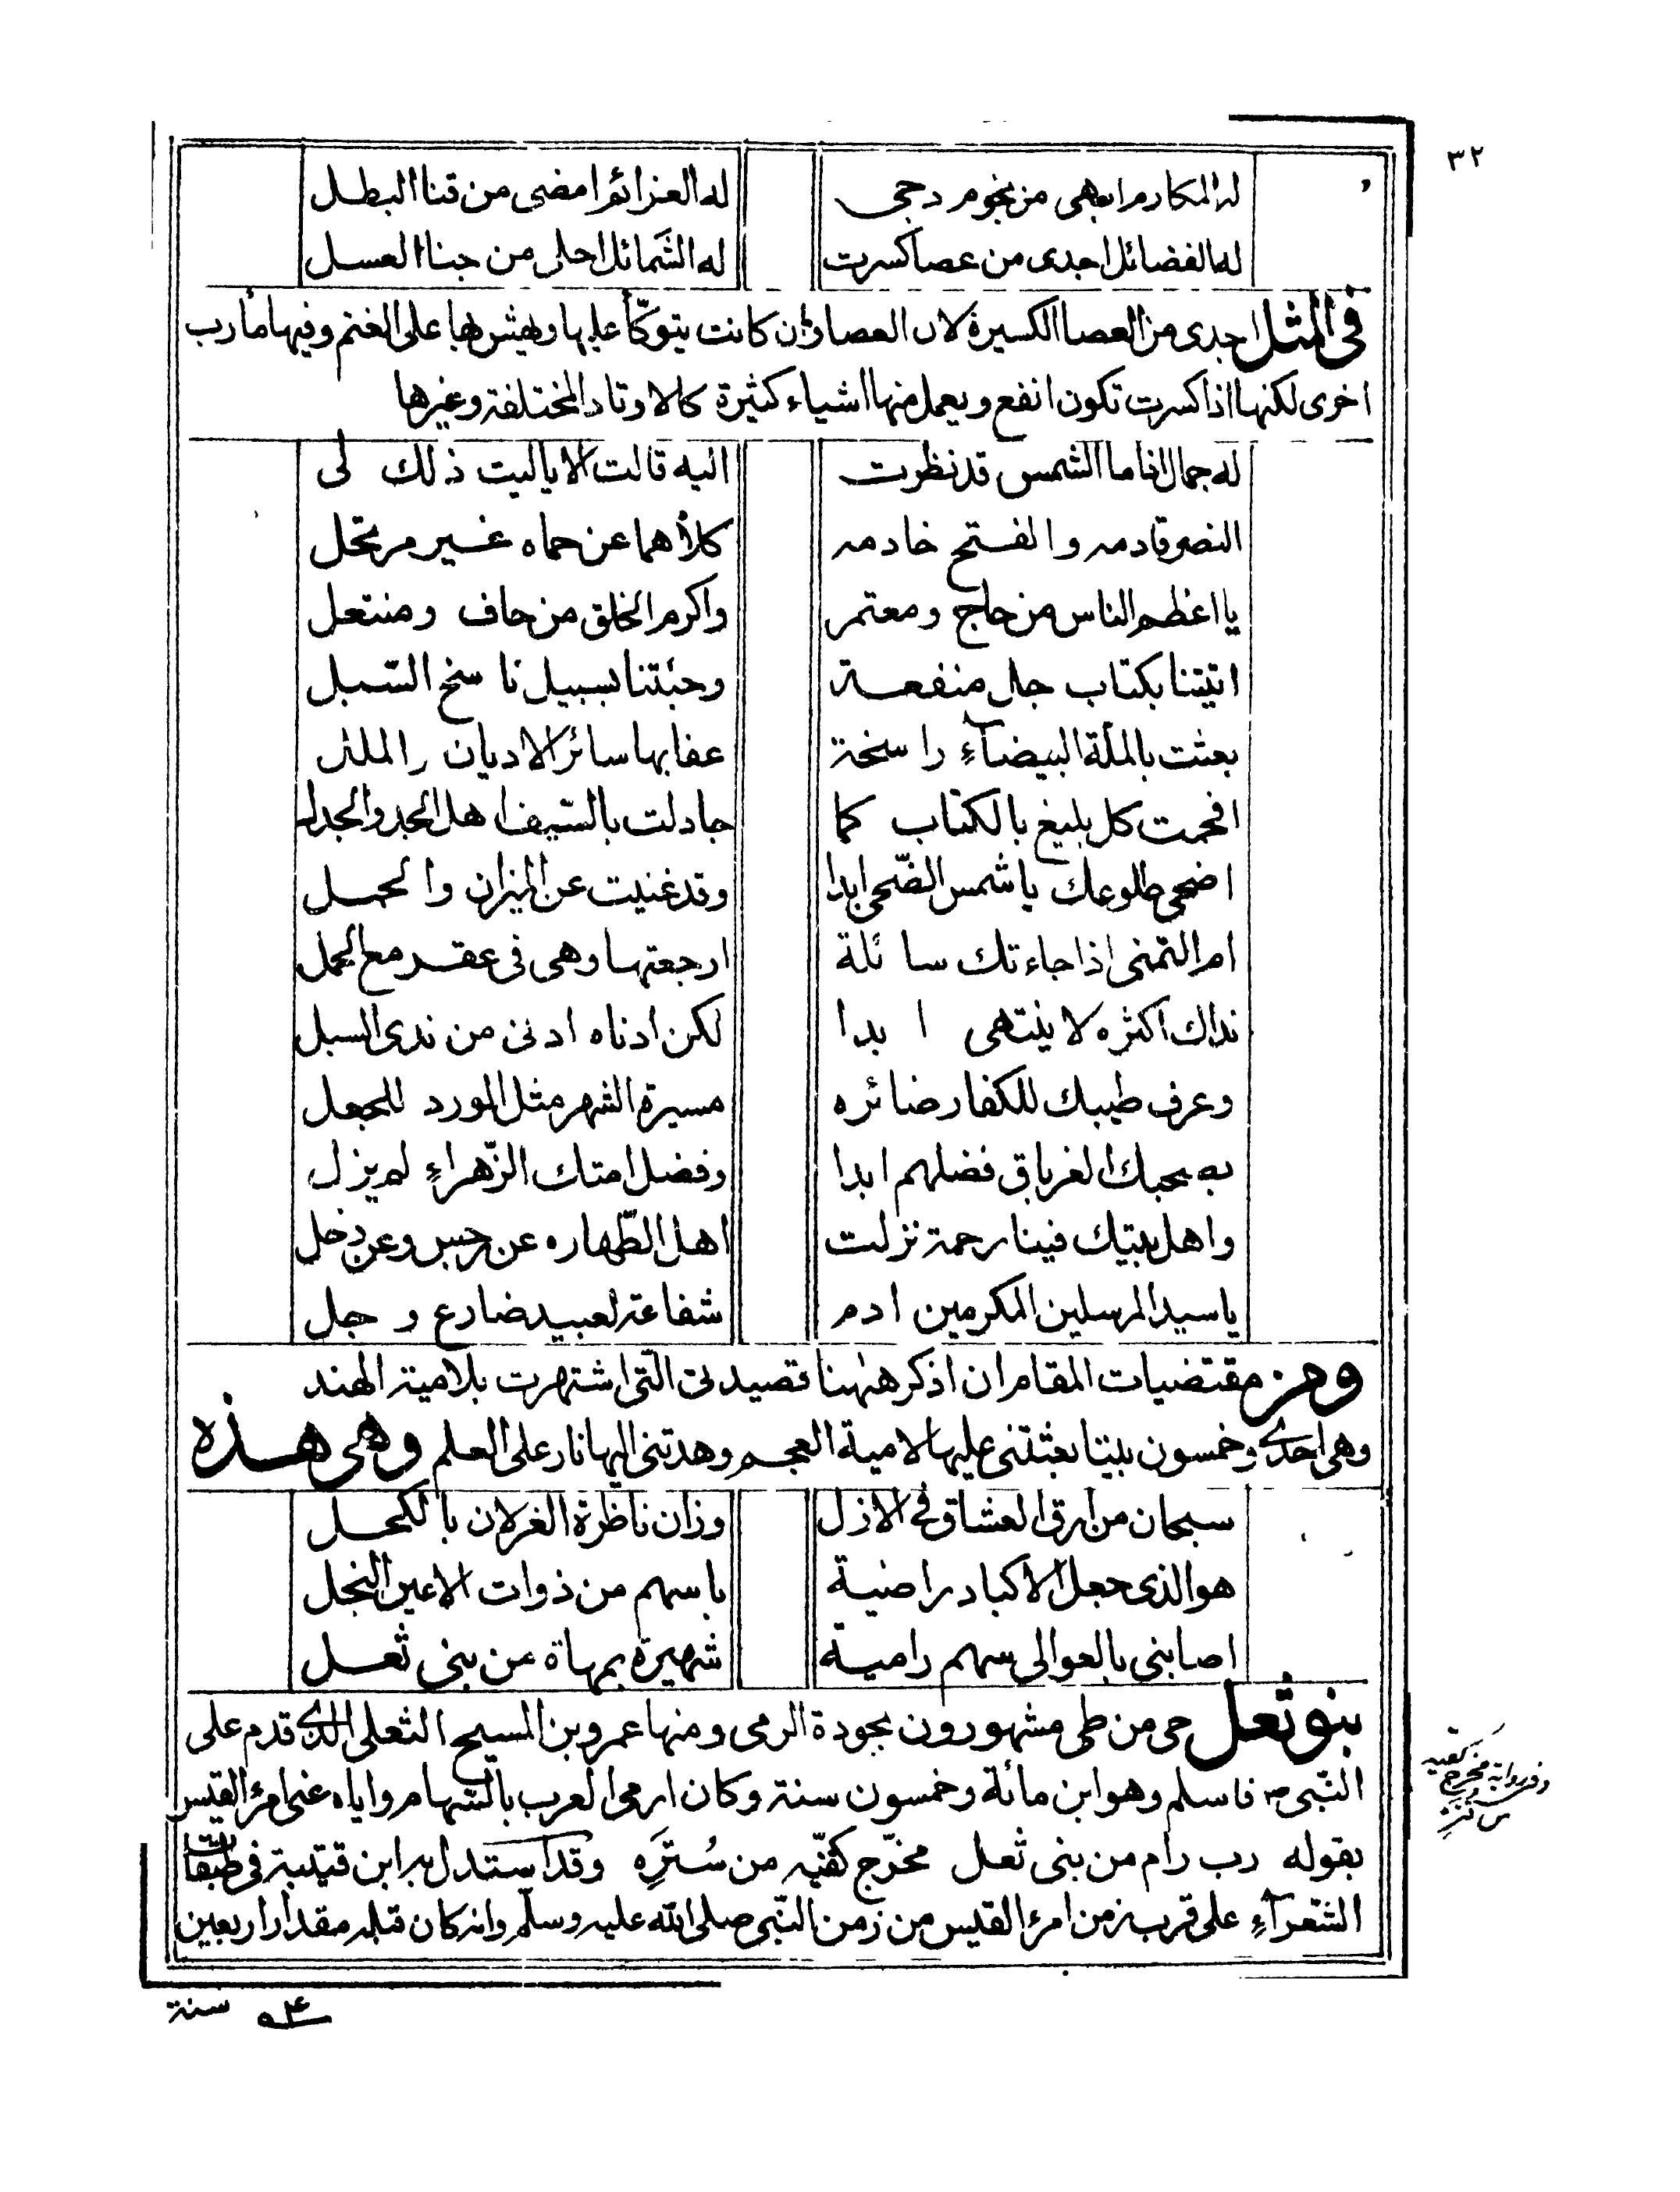 ٣٢
له المكارم ابهى من نجوم دجى له العزائم امضى من قنا البطل
له الفضائل اجدى من عصا كسرت له الشمائل احلى من جنا العسل
فى المثل اجدى من العصا الكسيرة لان العصا وان كانت يتوكّأ عليها ويهش بها على الغنم وفيها مأرب
اخرى لكنها اذا كسرت تكون انفع ويعمل منها اشياء كثيرة كالاوتاد المختلفة وغيرها
له جمال اذا ما الشمس قد نظرت اليه قالت الا ياليت ذلك لى
النصر قادمه والفتح خادمه كلاهما عن حماه غير مرتحل
يا اعظم الناس من حاج ومعتمر واكرم الخلق من حاف ومنتعل
اتيتنا بكتاب جل منفعة وجئتنا بسبيل ناسخ السبل
بعثت بالملّة البيضآء راسخة عفا بها سائر الاديان والملل
افحمت كل بليغ بالكتاب كما جادلت بالسّيف اهل الجد والجدل
اضحى طلوعك يا شمس الضّحى ابدا وقد غنيت عن الميزان والحمل
ام التمنى اذا جاءتك سائلة ارجعتها وهى فى عقد مع الجمل
نداك اكثره لا ينتهى ابدا لكن ادناه ادنى من ندى السبل
وعرف طيبك للكفار ضائره مسيرة الشهر مثل الورد للجعل
به صحبك الغر باق فضلهم ابدا وفضل امتك الزّهراء لم يزل
واهل بيتك فينا رحمة نزلت اهل الطّهاره عن رجس وعن دخل
يا سيد المرسلين المكرمين ادم شفاعة لعبيد ضارع وجل
ومن مقتضيات المقام ان اذكر ههنا قصيدتى الّتى اشتهرت بلامية الهند
وهى احدى وخمسون بيتا بعثتنى عليها لامية العجم وهدتنى اليها نار على العلم وهى هذه
سبحان من ارق العشاق فى الازل وزان ناظرة الغزلان بالكحل
هو الذى جعل الاكباد راضية باسهم من ذوات الاعين النجل
اصابنى بالعوالى سهم رامية شهيرة بمهاة من بنى ثعل
بنو ثعل حى من طى مشهورون بجودة الرمى ومنها عمرو بن المسيح الثعلى الذى قدم على
النّبى ص فاسلم وهو ابن مائة وخمسون سنة وكان ارمى العرب بالسّهام واياه عنى امرؤ القيس
بقوله رب رام من بنى ثعل مخرّج كفّيه من سُترَه وقد استدل به ابن قتيبة فى طبقات
الشعرآء على قرب زمن امرئ القيس من زمن النّبى صلى الله عليه وسلّم وانه كان قبله مقدار اربعين
وفى رواية مخرج كفيه
سنة